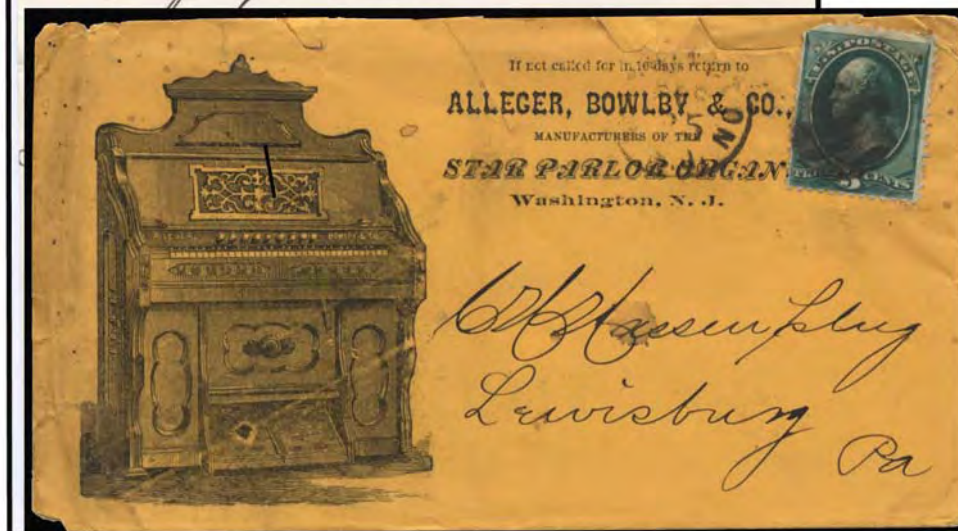 If not called for in 10 days return to
ALLEGER, BOWLBY & CO.,
MANUFACTURERS OF THE
STAR PARLOR ORGAN.
Washington, N. J.
U.S. POSTAGE
THREE CENTS
Hassenplug
Lewisburg
Pa